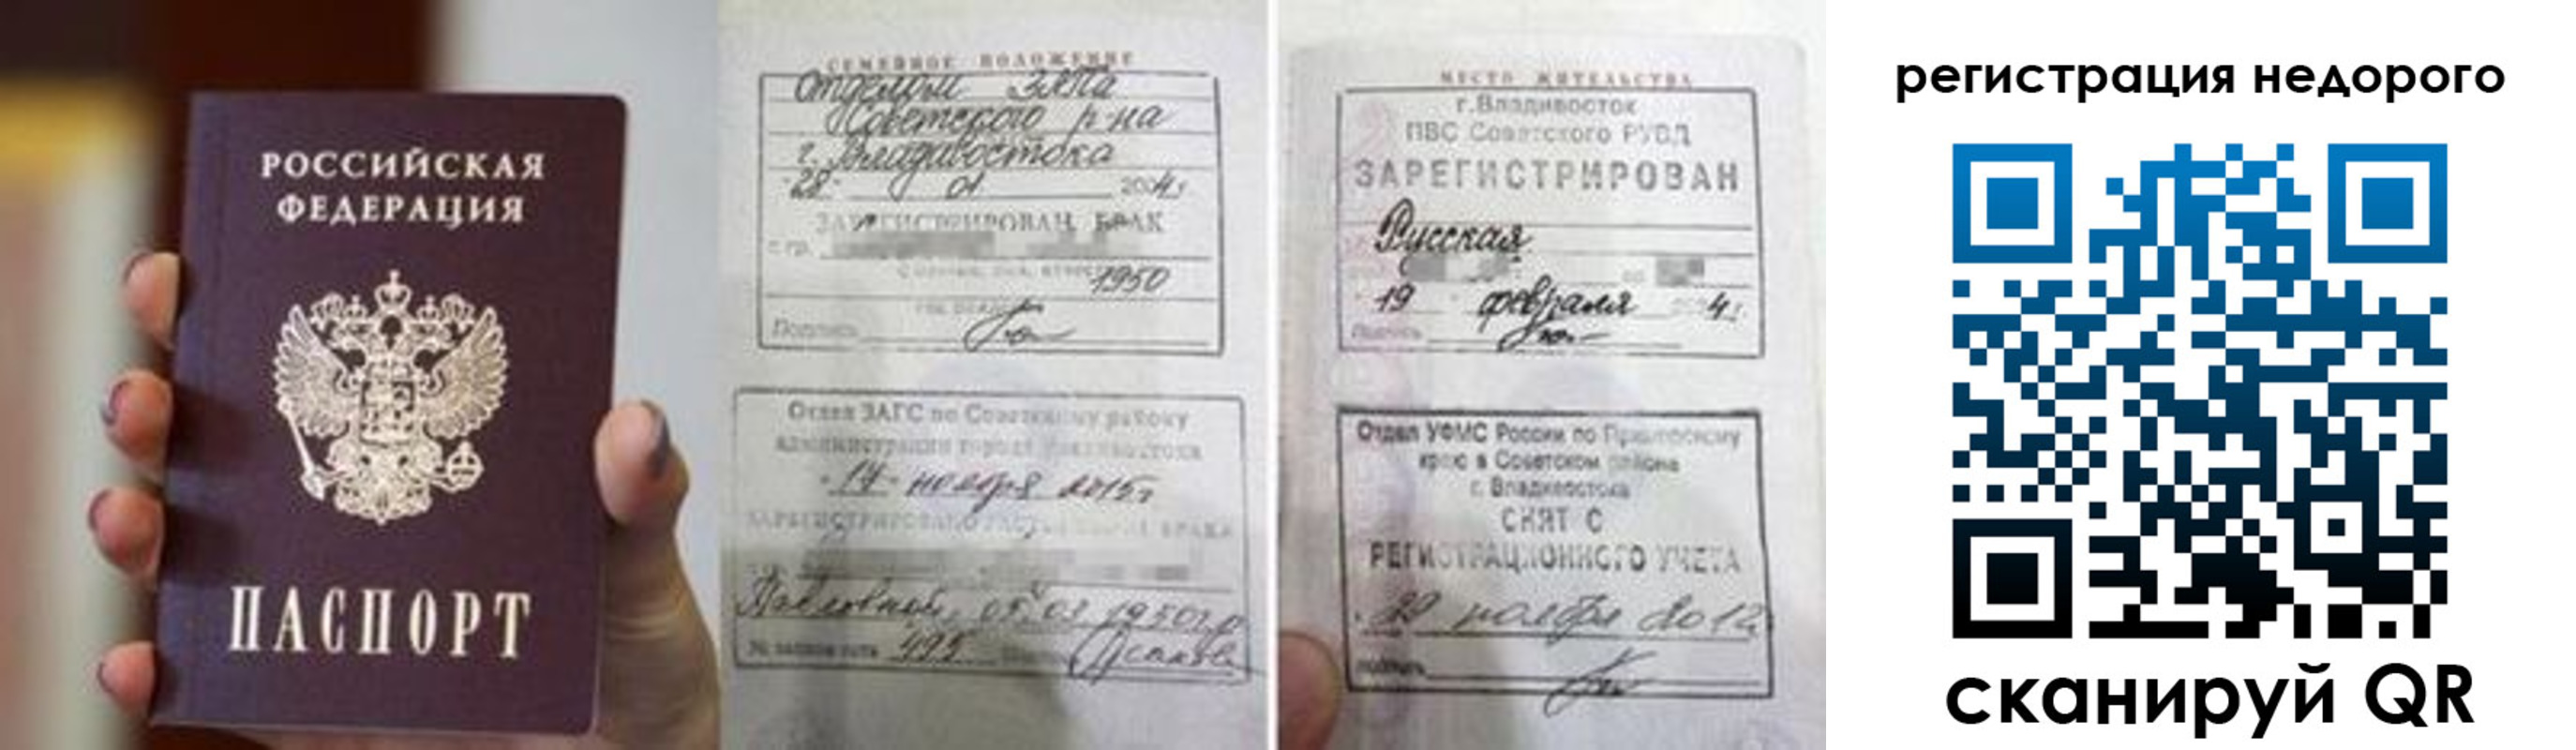 РОССИЙСКАЯ
ФЕДЕРАЦИЯ
ПАСПОРТ
СЕМЕЙНОЕ ПОЛОЖЕНИЕ
Отделом ЗАГСа
Советского р-на
г. Владивостока
"28" 01 2004г.
ЗАРЕГИСТРИРОВАН БРАК
с гр.
1950
Подпись
Отдел ЗАГС по Советскому району
администрации города Владивостока
"17" ноября 2015г
ЗАРЕГИСТРИРОВАНО РАСТОРЖЕНИЕ БРАКА
Павловной, 05.03.1950г.р
№ записи акта 495
МЕСТО ЖИТЕЛЬСТВА
г.Владивосток
ПВС Советского РУВД
ЗАРЕГИСТРИРОВАН
Русская
19 февраля 4г.
Подпись
Отдел УФМС России по Приморскому
краю в Советском района
г. Владивостока
СНЯТ С
РЕГИСТРАЦИОННОГО УЧЕТА
ноября 2012
подпись
регистрация недорого
сканируй QR